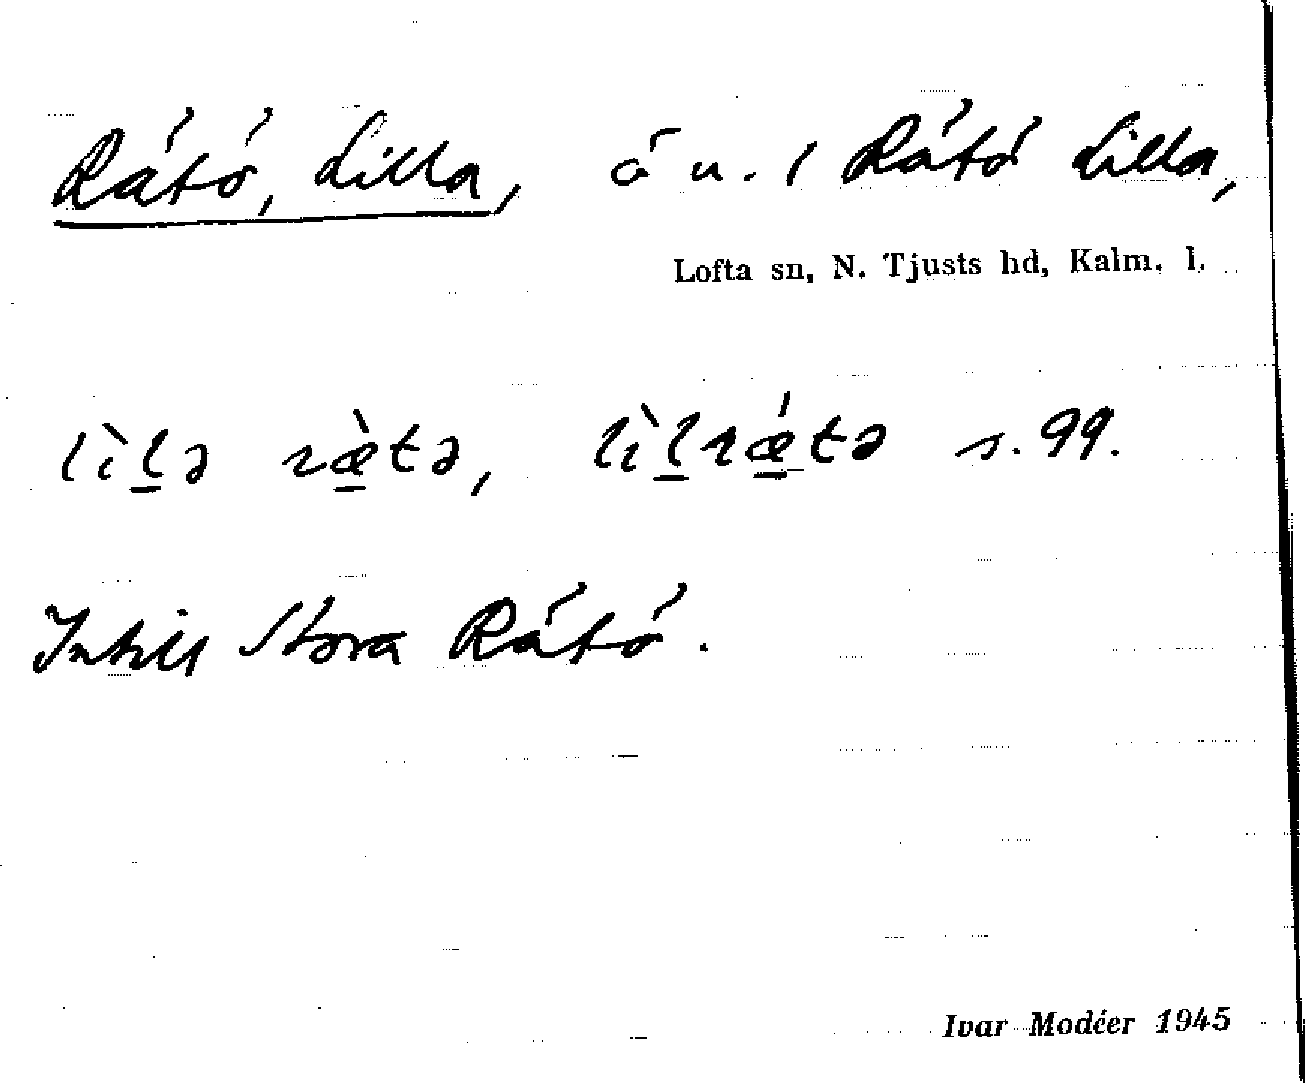 Rätö, Lilla, ö n. / Rätö Lilla,
Lofta sn, N. Tjusts hd, Kalm. l.
lìl̲ə ræ̲̀tə, lìl̲rǽ̲tə s. 99.
Intill Stora Rätö.
Ivar Modéer 1945